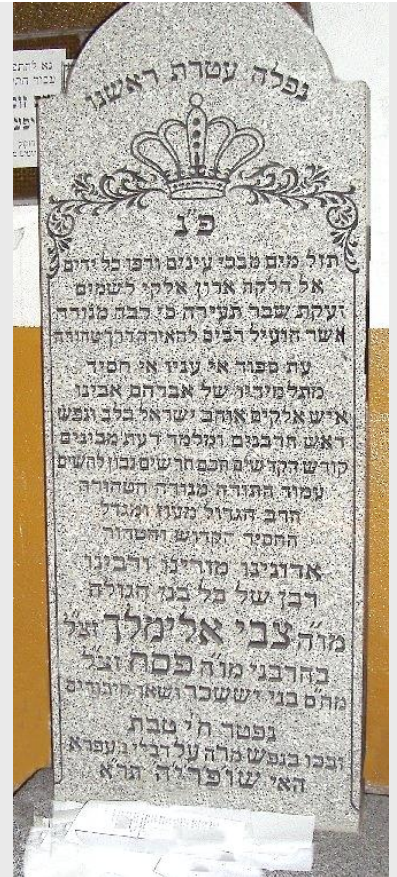 נפלה עטרת ראשנו
פ״נ
תזל מים מבכי עינים ורפו כל ידים
אל הלקח ארון אלקי לשמים
זעקת שבר תעירה כי כבה מנורה
אשר הועיל רבים להאירה דרך טהורה
עת ספוד אי עניו אי חסיד
מתלמידיו של אברהם אבינו
איש אלקים אוהב ישראל בלב ונפש
ראש הרבנים ומלמד דעת מבינים
קודש הקדשים חכם חרשים נבון לחשים
עמוד התורה מנורה הטהורה
הרב הגדול מעוז ומגדל
החסיד הקדוש והטהור
אדונינו מורינו ורבינו
רבן של כל בני הגולה
מו״ה צבי אלימלך זצ״ל
בהרבני מו״ה פסח זצ״ל
מח״ס בני יששכר ושאר חיבורים
נפטר ח״י טבת
ובכו בנפש מרה על דבלי בעפרא
האי שופריה תר״א